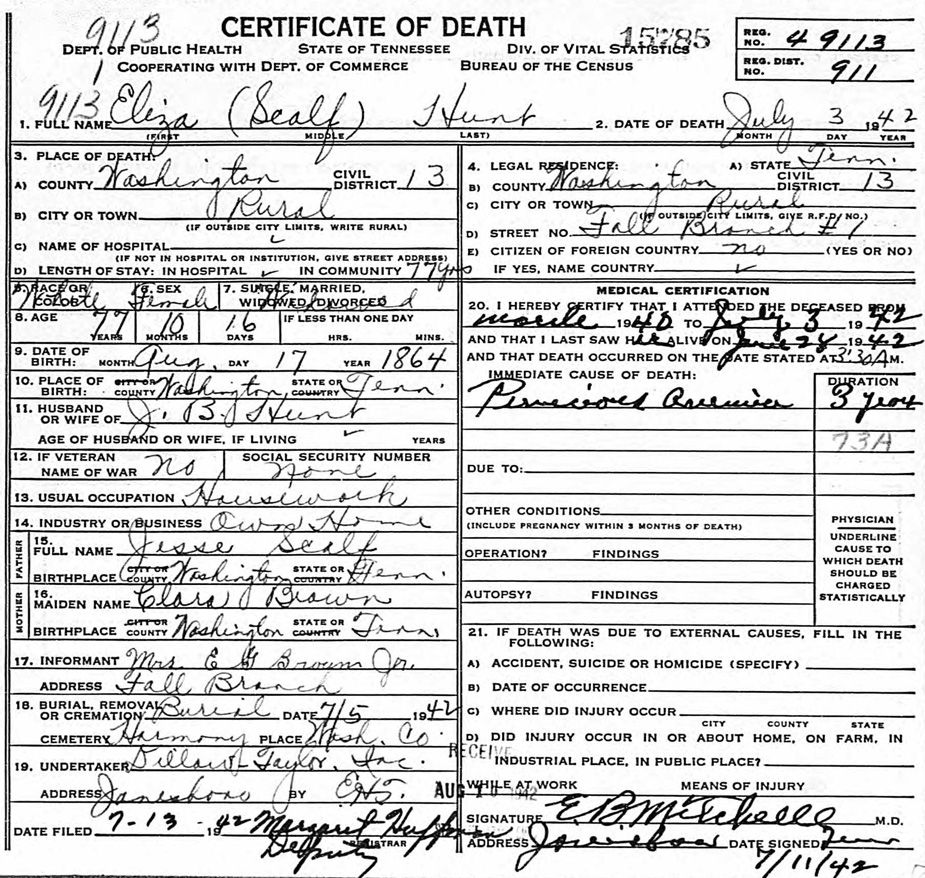 9113
CERTIFICATE OF DEATH
15785
DEPT. OF PUBLIC HEALTH STATE OF TENNESSEE DIV. OF VITAL STATISTICS
1 COOPERATING WITH DEPT. OF COMMERCE BUREAU OF THE CENSUS
REG. NO. 49113
REG. DIST. NO. 911
9113
1. FULL NAME Eliza (Scalf) Hunt
(FIRST) MIDDLE LAST)
2. DATE OF DEATH July 3 1942
MONTH DAY YEAR
3. PLACE OF DEATH:
A) COUNTY Washington CIVIL DISTRICT 13
B) CITY OR TOWN Rural
(IF OUTSIDE CITY LIMITS, WRITE RURAL)
C) NAME OF HOSPITAL
(IF NOT IN HOSPITAL OR INSTITUTION, GIVE STREET ADDRESS)
D) LENGTH OF STAY: IN HOSPITAL IN COMMUNITY 77 yrs
4. LEGAL RESIDENCE: A) STATE Tenn.
B) COUNTY Washington CIVIL DISTRICT 13
C) CITY OR TOWN Rural
(IF OUTSIDE CITY LIMITS, GIVE R.F.D. NO.)
D) STREET NO. Fall Branch #1
E) CITIZEN OF FOREIGN COUNTRY no (YES OR NO)
IF YES, NAME COUNTRY
5. RACE OR COLOR White 6. SEX Female 7. SINGLE, MARRIED, WIDOWED, DIVORCED Widowed
8. AGE 77 10 16 IF LESS THAN ONE DAY
YEARS MONTHS DAYS HRS. MINS.
9. DATE OF BIRTH: MONTH Aug. DAY 17 YEAR 1864
10. PLACE OF BIRTH: CITY OR COUNTY Washington STATE OR COUNTRY Tenn.
11. HUSBAND OR WIFE OF J. B. Hunt
AGE OF HUSBAND OR WIFE, IF LIVING YEARS
12. IF VETERAN NAME OF WAR no SOCIAL SECURITY NUMBER none
13. USUAL OCCUPATION Housework
14. INDUSTRY OR BUSINESS Own Home
FATHER
15. FULL NAME Jesse Scalf
BIRTHPLACE CITY OR COUNTY Washington STATE OR COUNTRY Tenn.
MOTHER
16. MAIDEN NAME Clara Brown
BIRTHPLACE CITY OR COUNTY Washington STATE OR COUNTRY Tenn.
17. INFORMANT Mrs. E G Brown Jr.
ADDRESS Fall Branch
18. BURIAL, REMOVAL OR CREMATION Burial DATE 7/5 1942
CEMETERY Harmony PLACE Wash. Co.
19. UNDERTAKER Dillow-Taylor, Inc.
ADDRESS Jonesboro BY
DATE FILED 7-13- 1942 Margaret Huffman
Deputy REGISTRAR
MEDICAL CERTIFICATION
20. I HEREBY CERTIFY THAT I ATTENDED THE DECEASED FROM
1940 TO July 3 1942
AND THAT I LAST SAW HER ALIVE ON June 28 1942
AND THAT DEATH OCCURRED ON THE DATE STATED AT 3:30 A M.
IMMEDIATE CAUSE OF DEATH: DURATION
Pernicious Anemia 3 years
73A
DUE TO:
OTHER CONDITIONS
(INCLUDE PREGNANCY WITHIN 3 MONTHS OF DEATH)
OPERATION? FINDINGS
AUTOPSY? FINDINGS
PHYSICIAN
UNDERLINE CAUSE TO WHICH DEATH SHOULD BE CHARGED STATISTICALLY
21. IF DEATH WAS DUE TO EXTERNAL CAUSES, FILL IN THE FOLLOWING:
A) ACCIDENT, SUICIDE OR HOMICIDE (SPECIFY)
B) DATE OF OCCURRENCE
C) WHERE DID INJURY OCCUR
CITY COUNTY STATE
D) DID INJURY OCCUR IN OR ABOUT HOME, ON FARM, IN
INDUSTRIAL PLACE, IN PUBLIC PLACE?
RECEIVE
AUG 10 1942
WHILE AT WORK MEANS OF INJURY
SIGNATURE E B Mitchell M.D.
ADDRESS Jonesboro DATE SIGNED Tenn
7/11/42